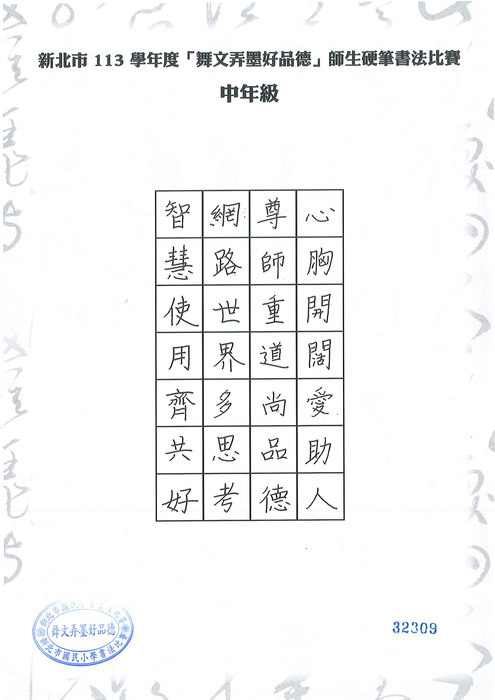 新北市 113 學年度「舞文弄墨好品德」師生硬筆書法比賽
中年級
心胸開闊愛助人
尊師重道尚品德
網路世界多思考
智慧使用齊共好
舞文弄墨好品德
新北市國民小學書法比賽
32309